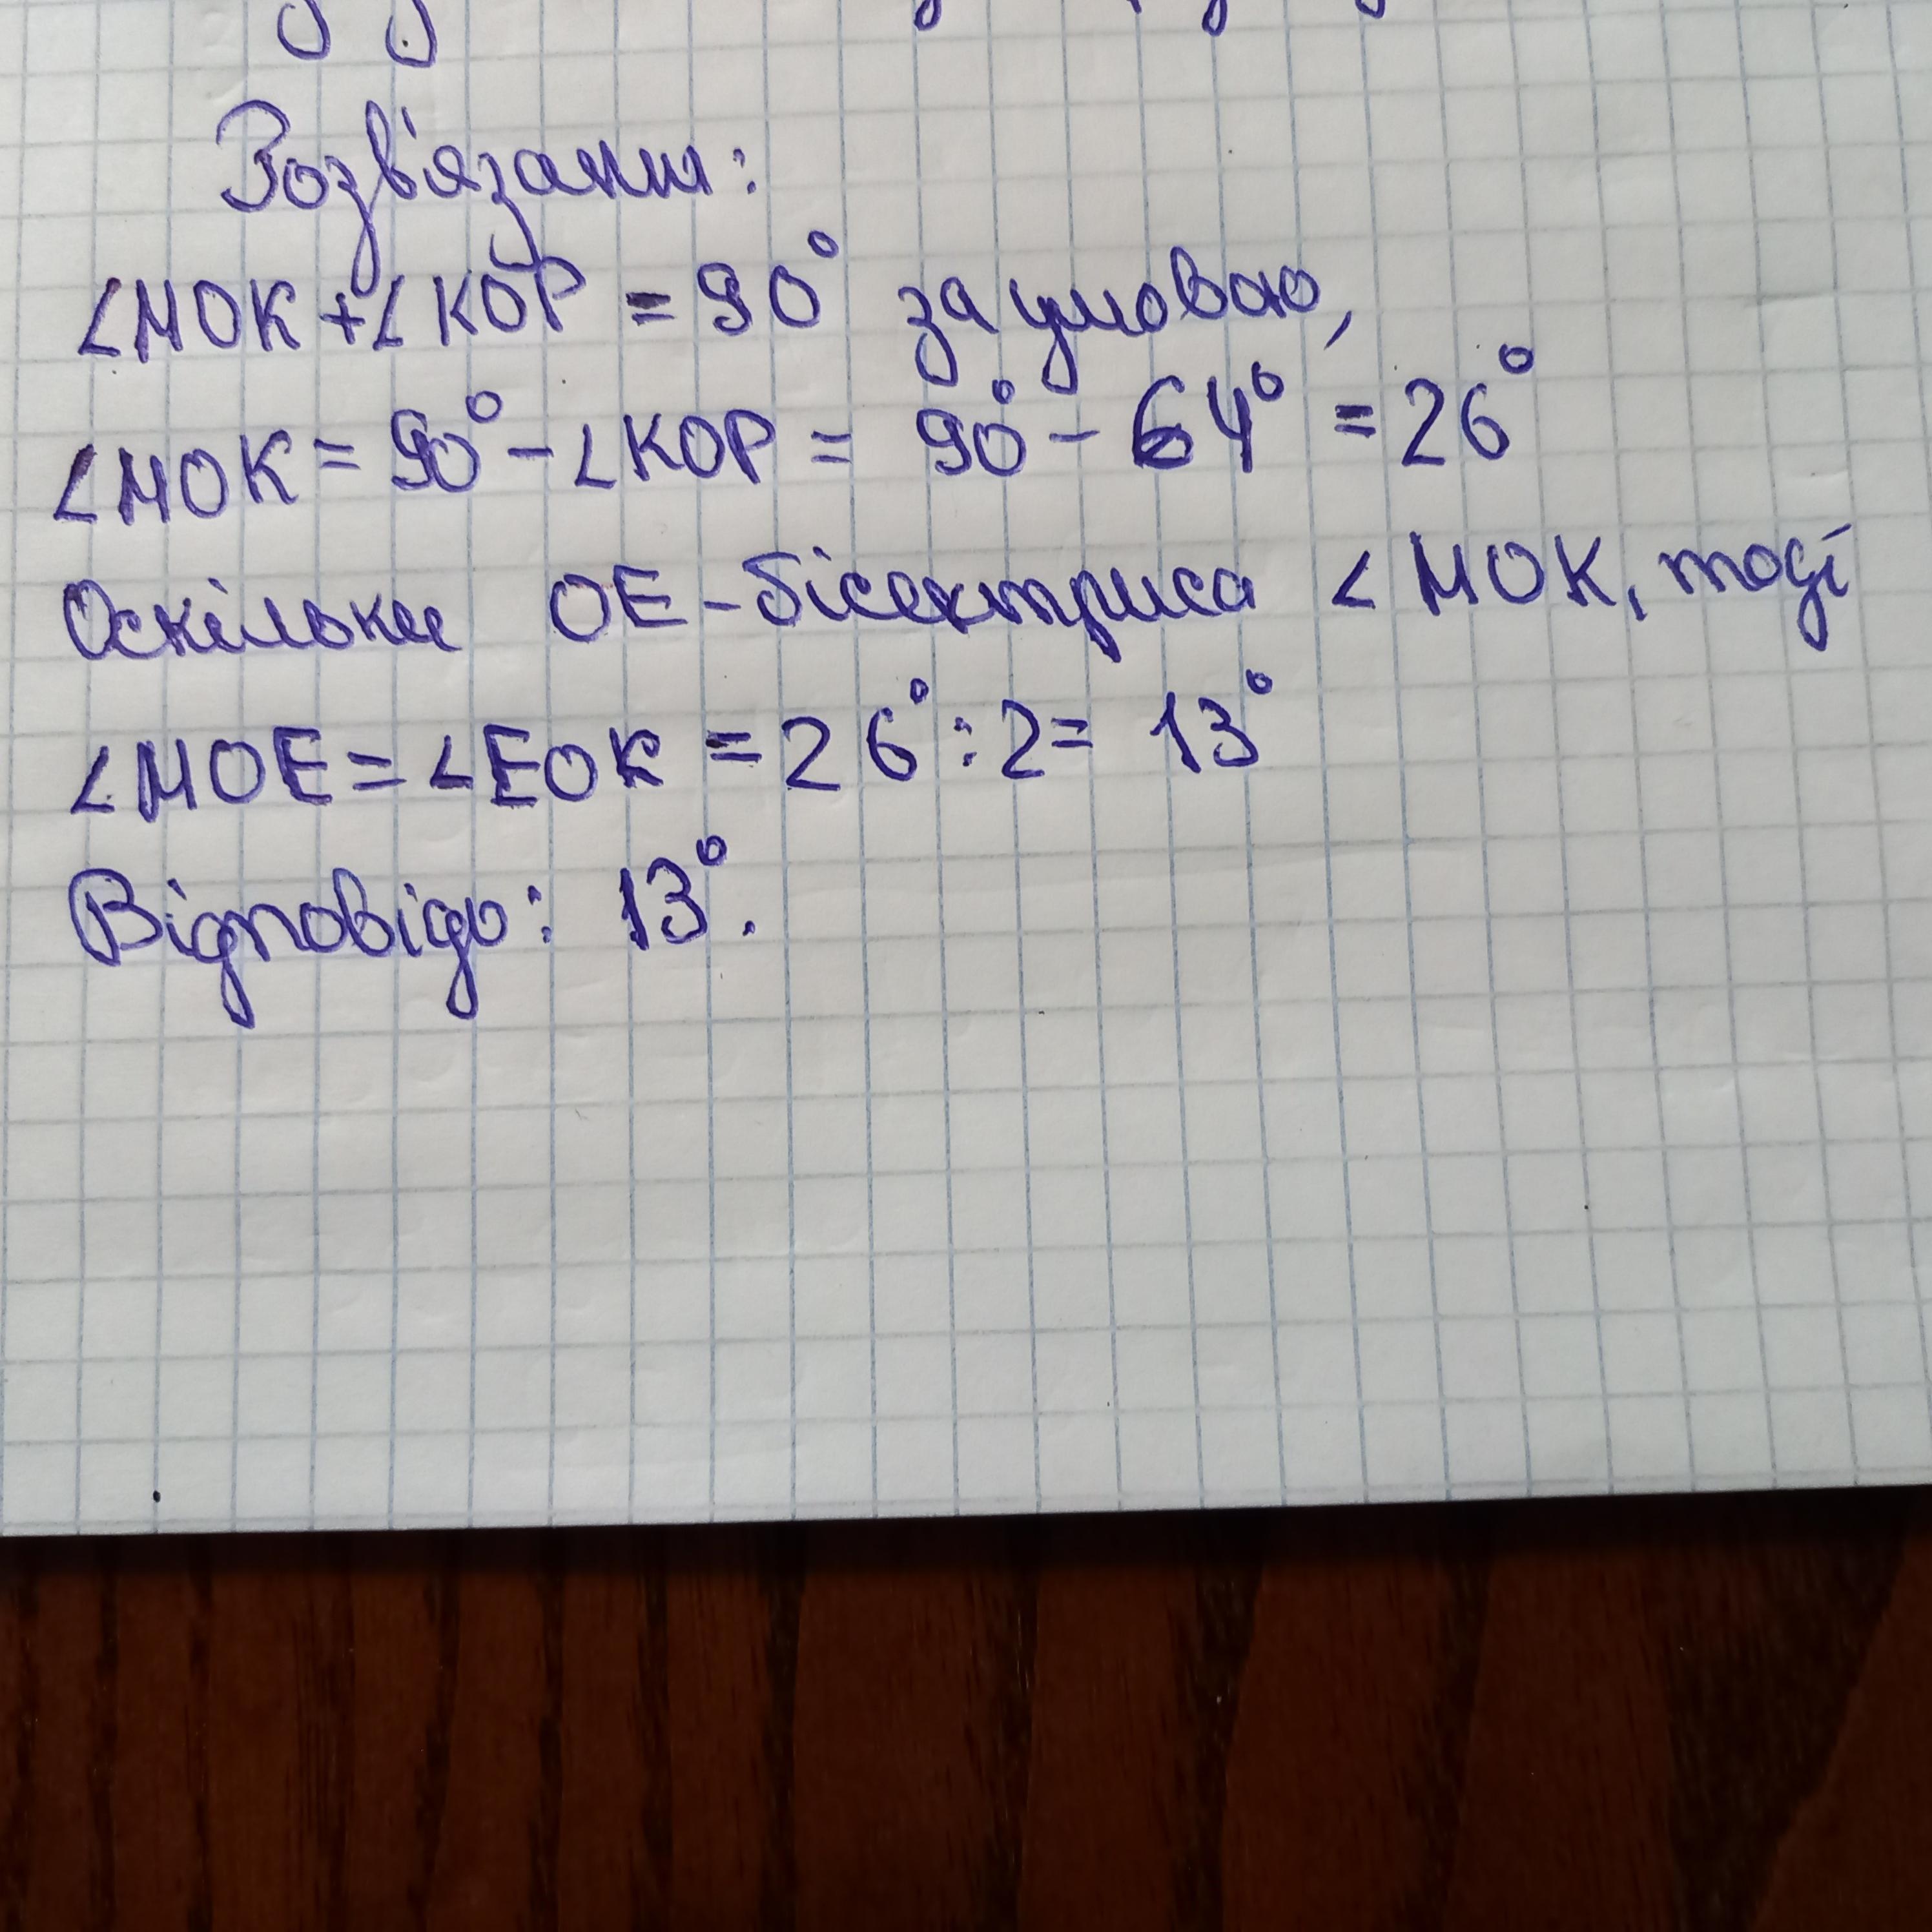 Розв'язання:
∠MOK + ∠KOP = 90° за умовою,
∠MOK = 90° - ∠KOP = 90° - 64° = 26°
Оскільки OE - бісектриса ∠MOK, тоді
∠MOE = ∠EOK = 26° : 2 = 13°
Відповідь: 13°.